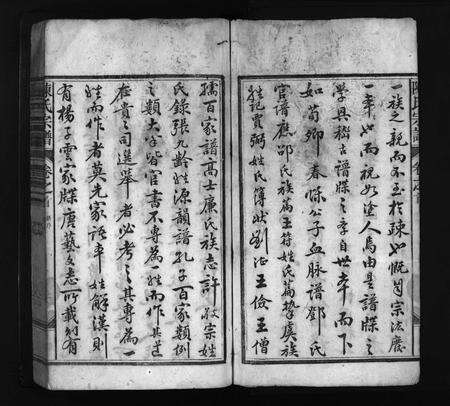 一族之親而不至於疎也慨自宗法廢
一幸也而視如塗人焉由是譜牒之
學具稽古譜牒之幸自世幸而下
如荀卿春秋公子血脉譜鄧氏
官譜應邵氏族篇王符姓氏篇摯虞族
姓記賈弼姓氏簿狀劉湛王儉王僧
孺百家譜高士廉氏族志許敬宗姓
氏錄張九齡姓源韻譜孔子百家類例
之類大率皆官書不專為一姓而作其
在貴之司選舉者必考之其專為一
姓而作者莫先家語本姓解漢則
有楊子雲家牒唐藝文志所載則有
陳氏宗譜
卷之首